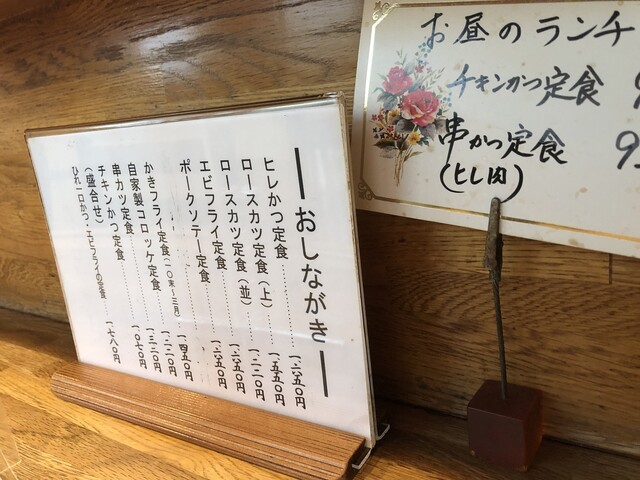 おしながき
ヒレかつ定食 一、六五〇円
ロースカツ定食(上) 一、五五〇円
ロースカツ定食(並) 一、二二〇円
エビフライ定食
ポークソテー定食
かきフライ定食(一〇末~三月) 一、四五〇円
自家製コロッケ定食 一、二二〇円
串カツ定食 一、三二〇円
チキンかつ定食 一、〇七〇円
(盛合せ)
ひれ一口かつ・エビフライの定食 一、七八〇円
お昼のランチ
チキンかつ定食
串かつ定食
(ヒレ肉)